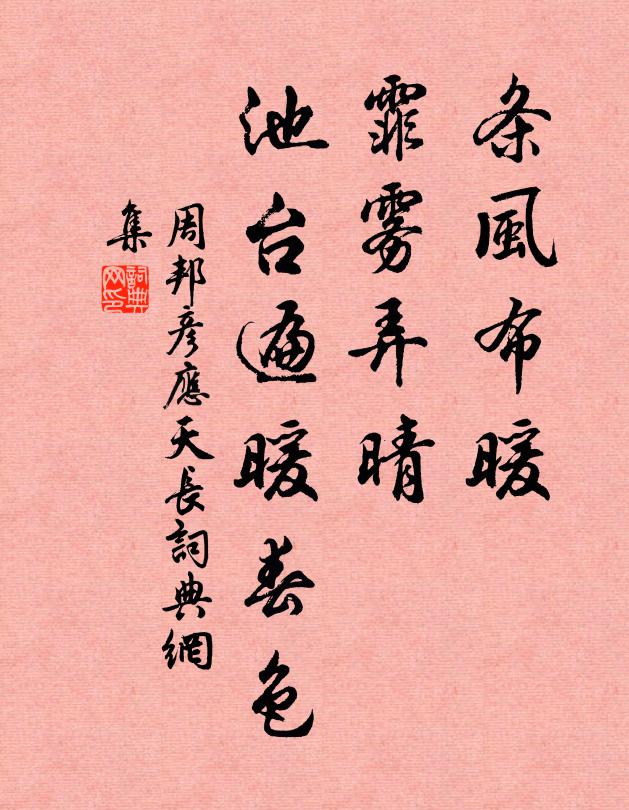 条風布暖
霏雾弄晴
池台遍暖春色
周邦彦應天長詞典網
集
詞典网印